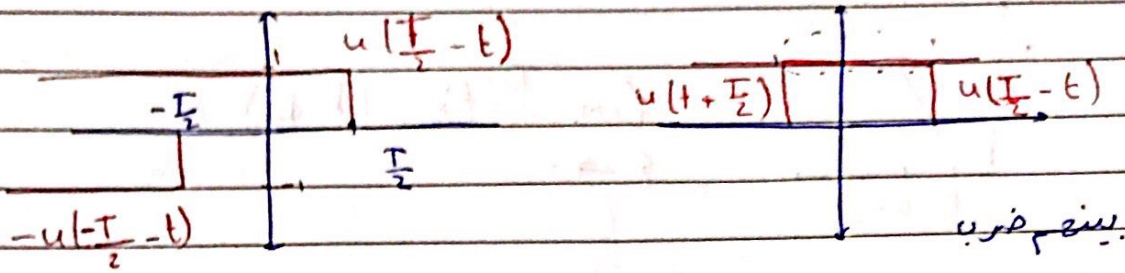 u(T/2 - t)
1
-T/2
u(t + T/2)
u(T/2 - t)
T/2
-1
-u(-T/2 - t)
بينهم ضرب